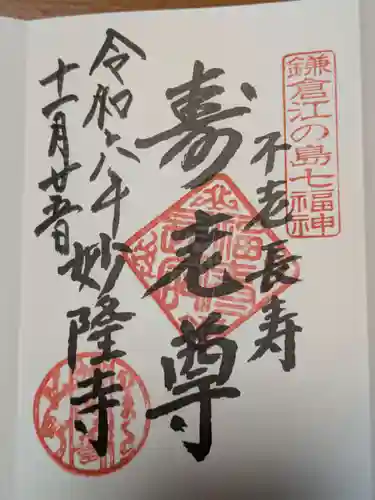 鎌倉江の島七福神
不老長寿
寿老尊
妙隆寺
令和六年
十一月廿五日